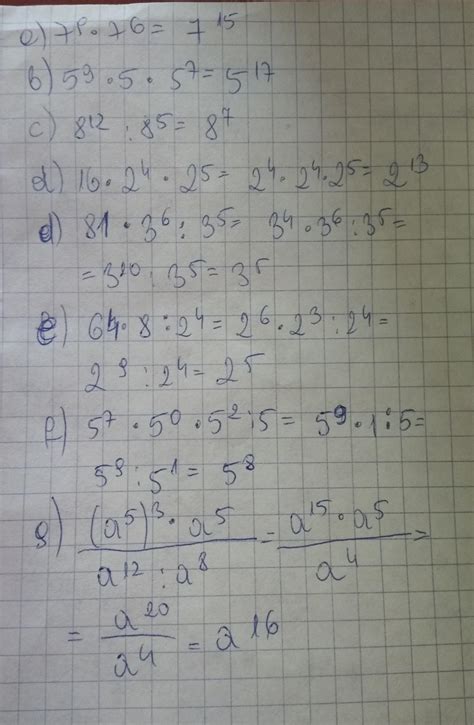 a) 7⁹ · 7⁶ = 7¹⁵
b) 5⁹ · 5 · 5⁷ = 5¹⁷
c) 8¹² : 8⁵ = 8⁷
d) 16 · 2⁴ · 2⁵ = 2⁴ · 2⁴ · 2⁵ = 2¹³
d) 81 · 3⁶ : 3⁵ = 3⁴ · 3⁶ : 3⁵ =
= 3¹⁰ : 3⁵ = 3⁵
e) 64 · 8 : 2⁴ = 2⁶ · 2³ : 2⁴ =
2⁹ : 2⁴ = 2⁵
f) 5⁷ · 5⁰ · 5² : 5 = 5⁹ · 1 : 5 =
5⁹ : 5¹ = 5⁸
g) (a⁵)³ · a⁵ / a¹² : a⁸ = a¹⁵ · a⁵ / a⁴ =
= a²⁰ / a⁴ = a¹⁶